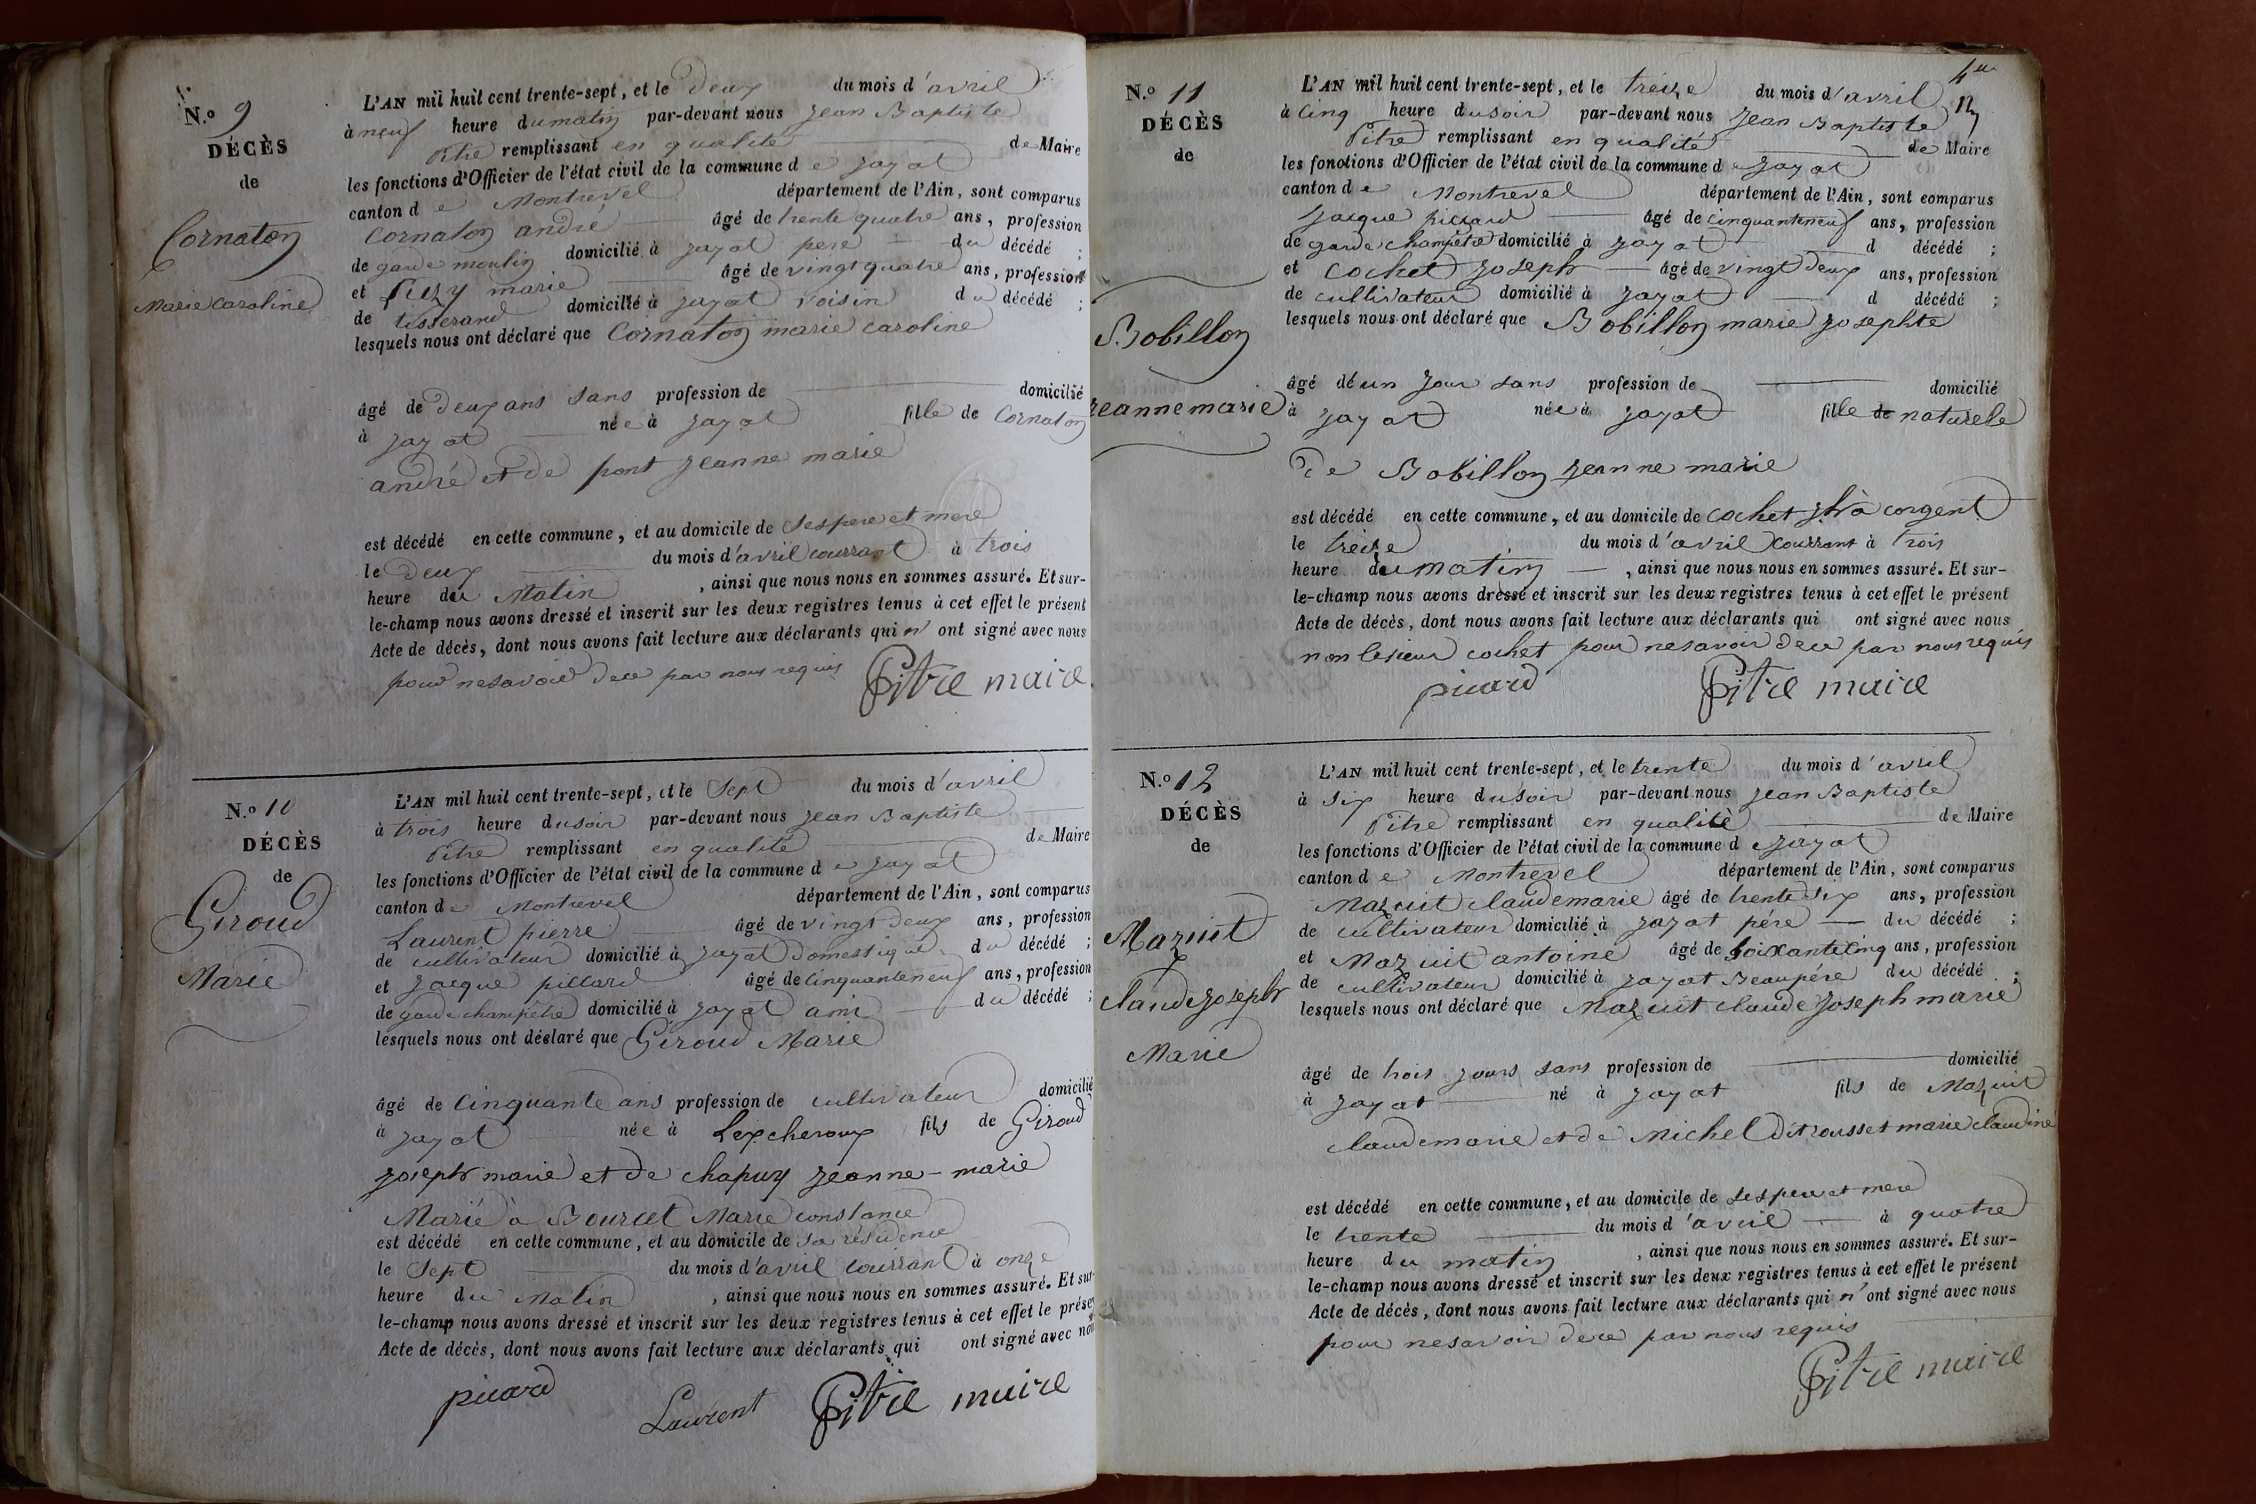 N.o 9
DÉCÈS
de
Cornaton
Marie Caroline
L'AN mil huit cent trente-sept, et le deux du mois d'avril
à neuf heure du matin par-devant nous jean Baptiste
Pitre remplissant en qualité de Maire
les fonctions d'Officier de l'état civil de la commune de jayat
canton de Montrevel département de l'Ain, sont comparus
Cornaton andré âgé de trente quatre ans, profession
de garde moulin domicilié à jayat pere du décédé ;
et marie âgé de vingt quatre ans, profession
de tisserand domicilié à jayat voisin du décédé ;
lesquels nous ont déclaré que Cornaton marie caroline
âgé de deux ans sans profession de domicilié
à jayat née à jayat fille de Cornaton
andré et de pont jeanne marie
est décédé en cette commune, et au domicile de ses pere et mere
le deux du mois d'avril courrant à trois
heure du Matin , ainsi que nous nous en sommes assuré. Et sur-
le-champ nous avons dressé et inscrit sur les deux registres tenus à cet effet le présent
Acte de décès, dont nous avons fait lecture aux déclarants qui n' ont signé avec nous
pour ne savoir de ce par nous requis Pitre maire
N.o 10
DÉCÈS
de
Giroud
Marie
L'AN mil huit cent trente-sept, et le Sept du mois d'avril
à trois heure du soir par-devant nous jean Baptiste
Pitre remplissant en qualité de Maire
les fonctions d'Officier de l'état civil de la commune de jayat
canton de Montrevel département de l'Ain, sont comparus
Laurent pierre âgé de vingt deux ans, profession
de cultivateur domicilié à jayat domestique du décédé ;
et jacque pillard âgé de cinquante neuf ans, profession
de garde champêtre domicilié à jayat ami du décédé ;
lesquels nous ont déclaré que Giroud Marie
âgé de cinquante ans profession de cultivateur domicilié
à jayat née à Lexcheroux fils de Giroud
joseph marie et de chapuy jeanne-marie
Marié à Bourcet Marie constance
est décédé en cette commune, et au domicile de sa résidence
le Sept du mois d'avril courrant à onze
heure du Matin , ainsi que nous nous en sommes assuré. Et sur-
le-champ nous avons dressé et inscrit sur les deux registres tenus à cet effet le présen
Acte de décès, dont nous avons fait lecture aux déclarants qui ont signé avec nou
picard Laurent Pitre maire
4eme
N.o 11
DÉCÈS
de
Bobillon
jeanne marie
L'AN mil huit cent trente-sept, et le treize du mois d'avril
à cinq heure du soir par-devant nous jean Baptiste
Pitre remplissant en qualité de Maire
les fonctions d'Officier de l'état civil de la commune de jayat
canton de Montrevel département de l'Ain, sont comparus
jacque piccard âgé de cinquante neuf ans, profession
de garde champêtre domicilié à jayat d décédé ;
et cochet joseph âgé de vingt deux ans, profession
de cultivateur domicilié à jayat d décédé ;
lesquels nous ont déclaré que Bobillon marie josephte
âgé de un jour sans profession de domicilié
à jayat née à jayat fille de naturele
de Bobillon jeanne marie
est décédé en cette commune, et au domicile de cochet jh à corgent
le treize du mois d'avril courrant à trois
heure du matin , ainsi que nous nous en sommes assuré. Et sur-
le-champ nous avons dressé et inscrit sur les deux registres tenus à cet effet le présent
Acte de décès, dont nous avons fait lecture aux déclarants qui ont signé avec nous
non le sieur cochet pour ne savoir de ce par nous requis
picard Pitre maire
N.o 12
DÉCÈS
de
Mazuit
claude joseph
Marie
L'AN mil huit cent trente-sept, et le trente du mois d'avril
à six heure du soir par-devant nous jean Baptiste
Pitre remplissant en qualité de Maire
les fonctions d'Officier de l'état civil de la commune de jayat
canton de Montrevel département de l'Ain, sont comparus
Mazuit claude marie âgé de trente six ans, profession
de cultivateur domicilié à jayat pére du décédé ;
et Mazuit antoine âgé de soixante cinq ans, profession
de cultivateur domicilié à jayat Beaupére du décédé ;
lesquels nous ont déclaré que Mazuit claude joseph marie
âgé de trois jours sans profession de domicilié
à jayat né à jayat fils de Mazuit
claude marie et de Michel dit rousset marie claudine
est décédé en cette commune, et au domicile de ses pere et mere
le trente du mois d'avril à quatre
heure du matin , ainsi que nous nous en sommes assuré. Et sur-
le-champ nous avons dressé et inscrit sur les deux registres tenus à cet effet le présent
Acte de décès, dont nous avons fait lecture aux déclarants qui n' ont signé avec nous
pour ne savoir de ce par nous requis
Pitre maire